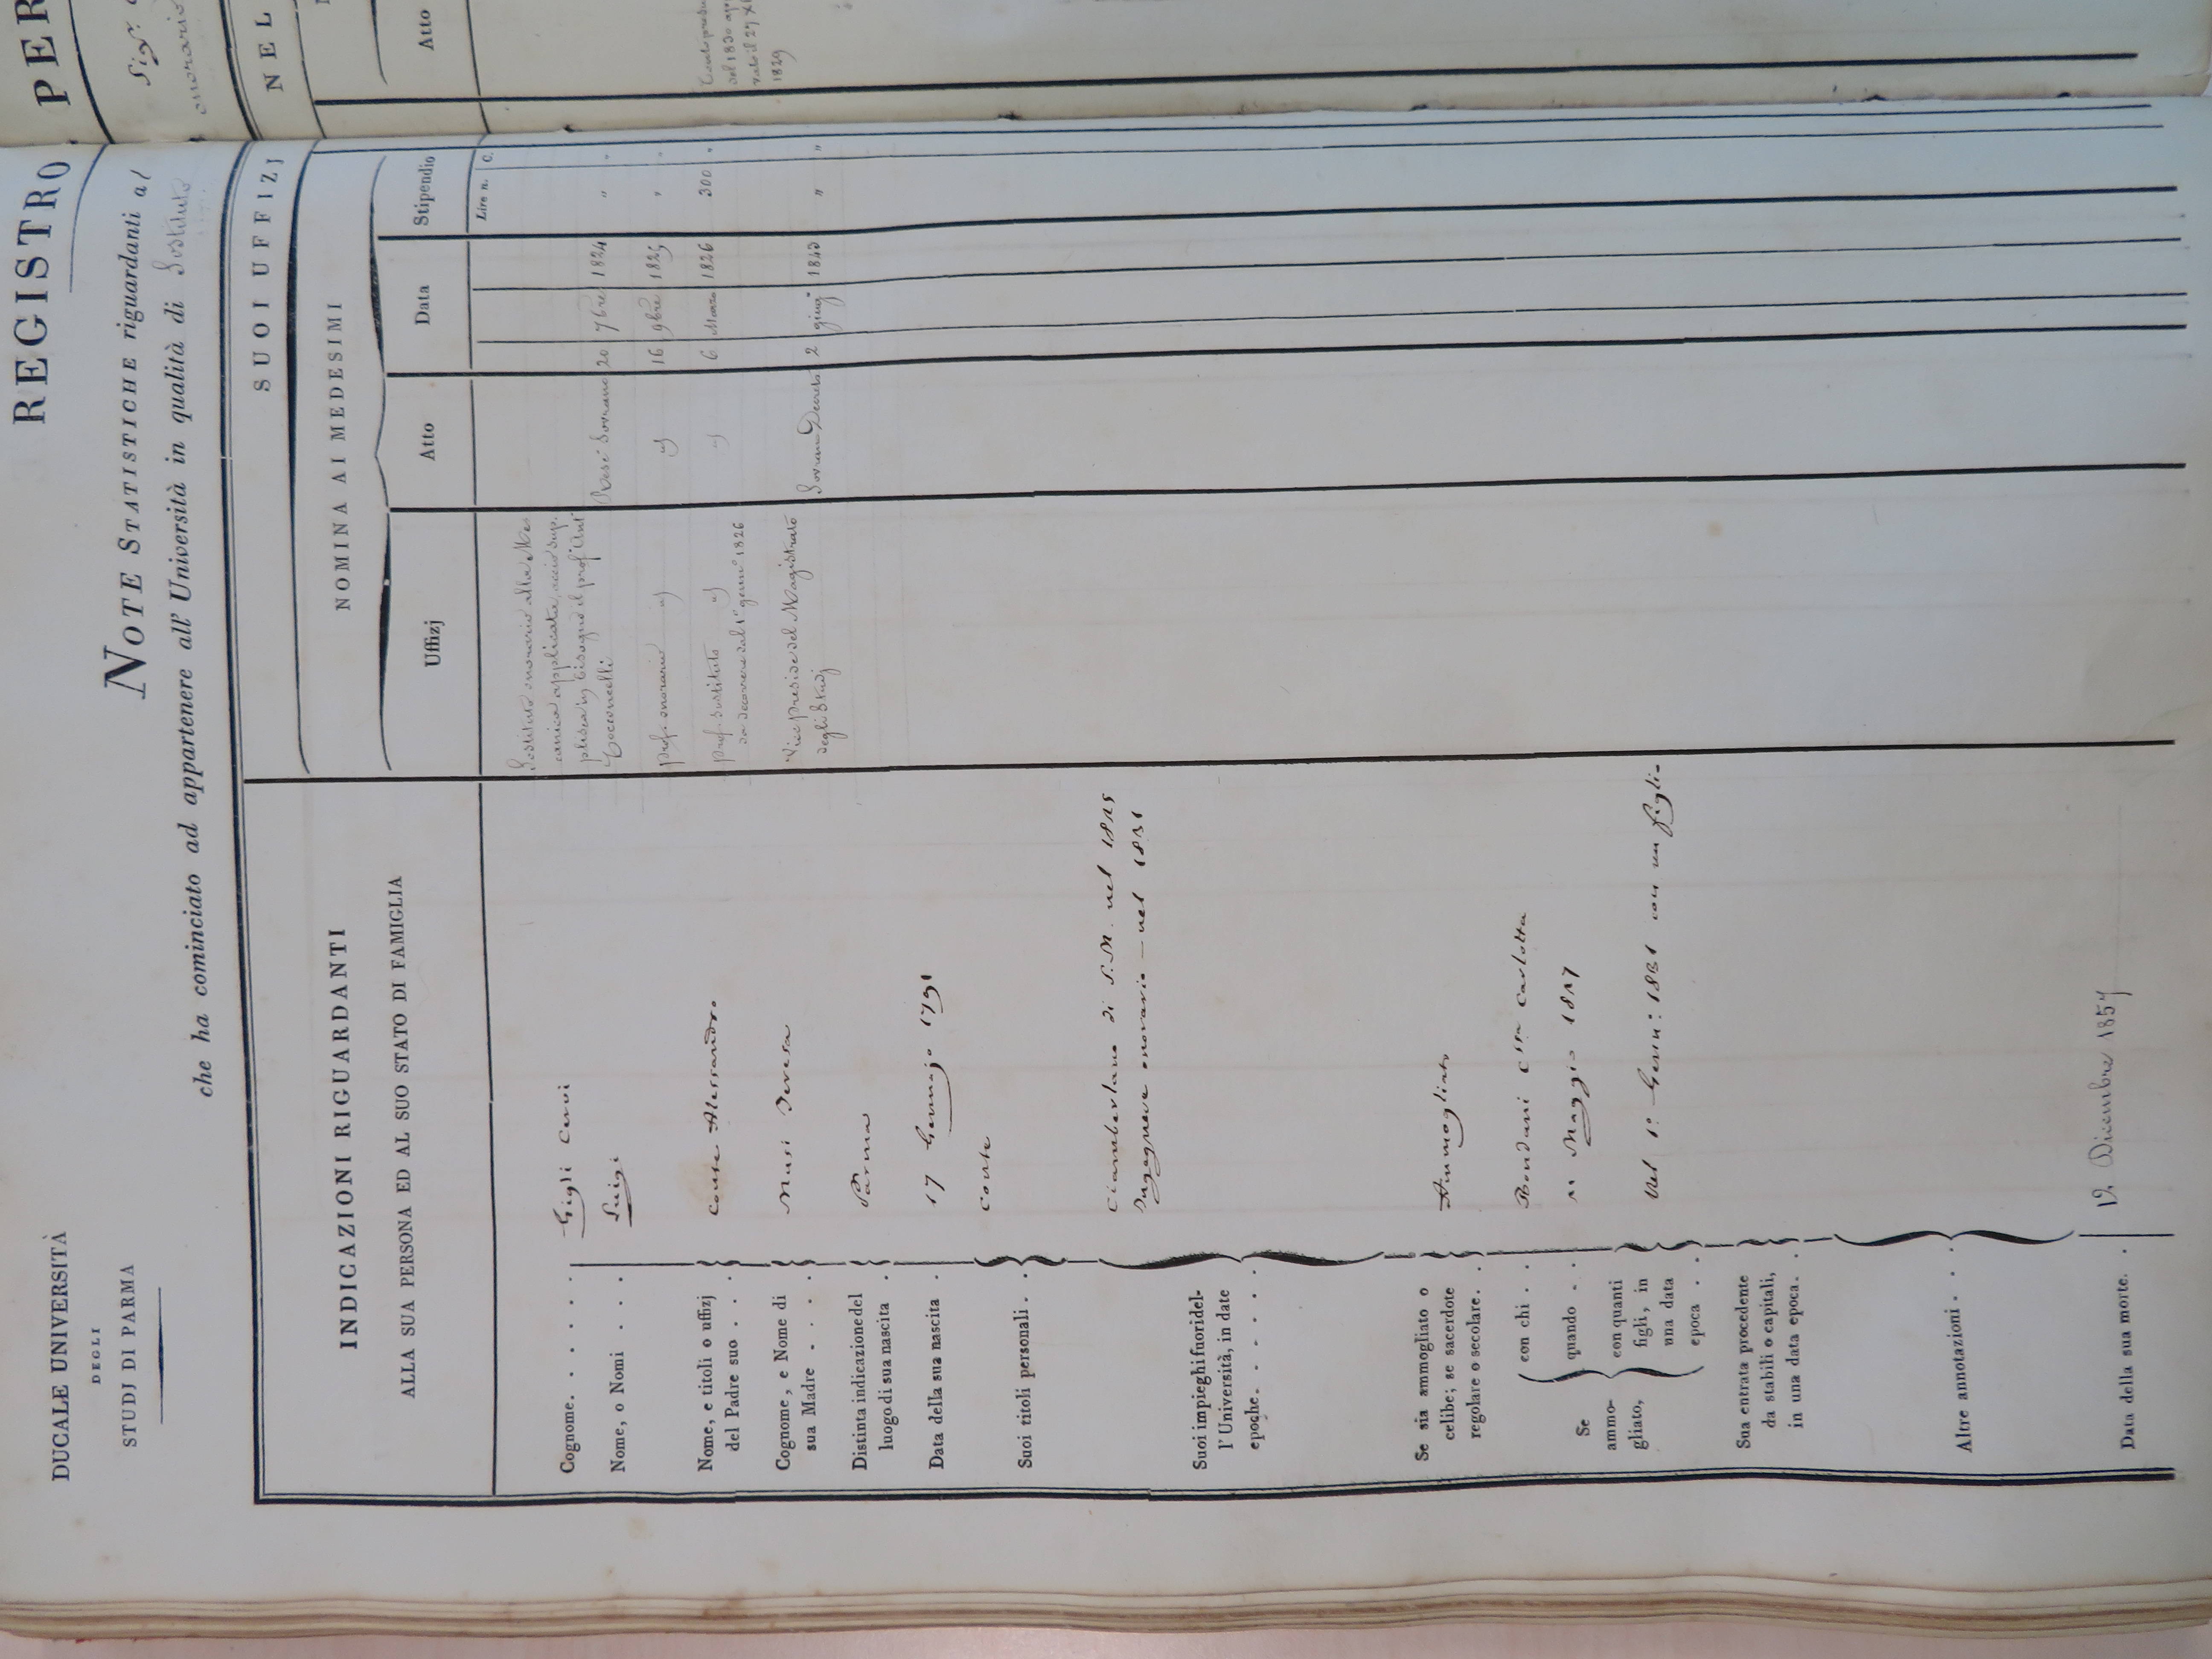 DUCALE UNIVERSITÀ
DEGLI
STUDJ DI PARMA
REGISTRO PER
NOTE STATISTICHE riguardanti al Sigr.
che ha cominciato ad appartenere all' Università in qualità di Sostituto onorario
INDICAZIONI RIGUARDANTI
ALLA SUA PERSONA ED AL SUO STATO DI FAMIGLIA
Cognome. . . . . . Gigli Cervi
Nome, o Nomi . . . . Luigi
Nome, e titoli o uffizj
del Padre suo . . . Conte Alessandro
Cognome, e Nome di
sua Madre . . . . Musi Teresa
Distinta indicazione del
luogo di sua nascita . Parma
Data della sua nascita . 17 Gennajo 1791
Suoi titoli personali . . Conte
Suoi impieghi fuori del-
l' Università, in date
epoche. . . . . .
Ciamberlano di S. M. nel 1825
Ingegnere onorario — nel 1831
Se sia ammogliato o
celibe; se sacerdote
regolare o secolare. . Ammogliato
Se
ammo-
gliato,
con chi . . Bondani Cssa Carlotta
quando . . 11 Maggio 1817
con quanti
figli, in
una data
epoca . .
Nel 1º Genn: 1831 con un figlio
Sua entrata procedente
da stabili o capitali,
in una data epoca. .
Altre annotazioni . . .
Data della sua morte. . 12 Dicembre 1854
SUOI UFFIZJ NEL
NOMINA AI MEDESIMI
Uffizj
Atto
Data
Stipendio
Lire n. C.
Sostituto onorario alla Mec
canica applicata, acciò sup.
plisca in bisogno il profe Ant
Cocconcelli
Sovrano 20 7bre 1824 " "
Prof. onorario id id 16 9bre 1825 " "
Prof. sostituto id id 6 Marzo 1826 300 "
da decorrere dal 1º gennº 1826
Vice preside del Magistrato
degli Studj
Sovrano Decreto 2 giugº 1843 " "
Atto
del 1830
il 29
1829